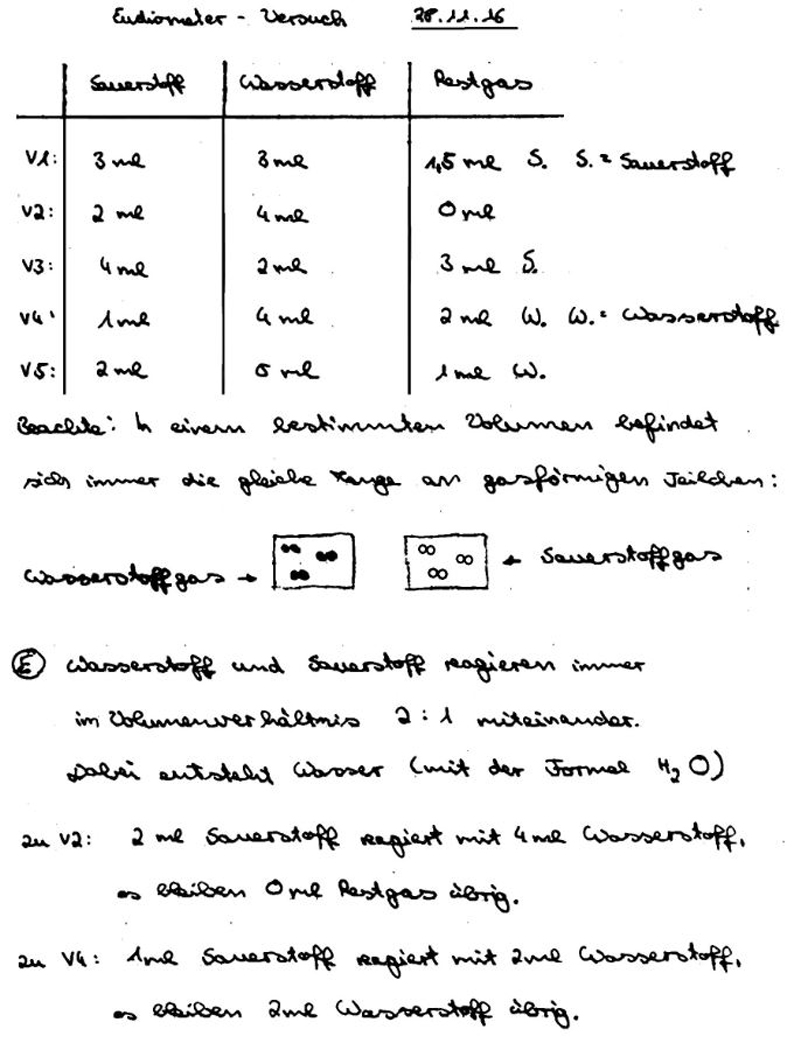 Eudiometer - Versuch 28.11.16
Sauerstoff Wasserstoff Restgas
V1: 3 ml 3 ml 1,5 ml S. S. = Sauerstoff
V2: 2 ml 4 ml 0 ml
V3: 4 ml 2 ml 3 ml S.
V4: 1 ml 4 ml 2 ml W. W. = Wasserstoff
V5: 2 ml 5 ml 1 ml W.
Beachte: In einem bestimmten Volumen befindet
sich immer die gleiche Menge an gasförmigen Teilchen:
Wasserstoffgas → ← Sauerstoffgas
Ⓔ Wasserstoff und Sauerstoff reagieren immer
im Volumenverhältnis 2 : 1 miteinander.
Dabei entsteht Wasser (mit der Formel H₂O)
zu V2: 2 ml Sauerstoff reagiert mit 4 ml Wasserstoff,
es bleiben 0 ml Restgas übrig.
zu V4: 1 ml Sauerstoff reagiert mit 2 ml Wasserstoff,
es bleiben 2 ml Wasserstoff übrig.